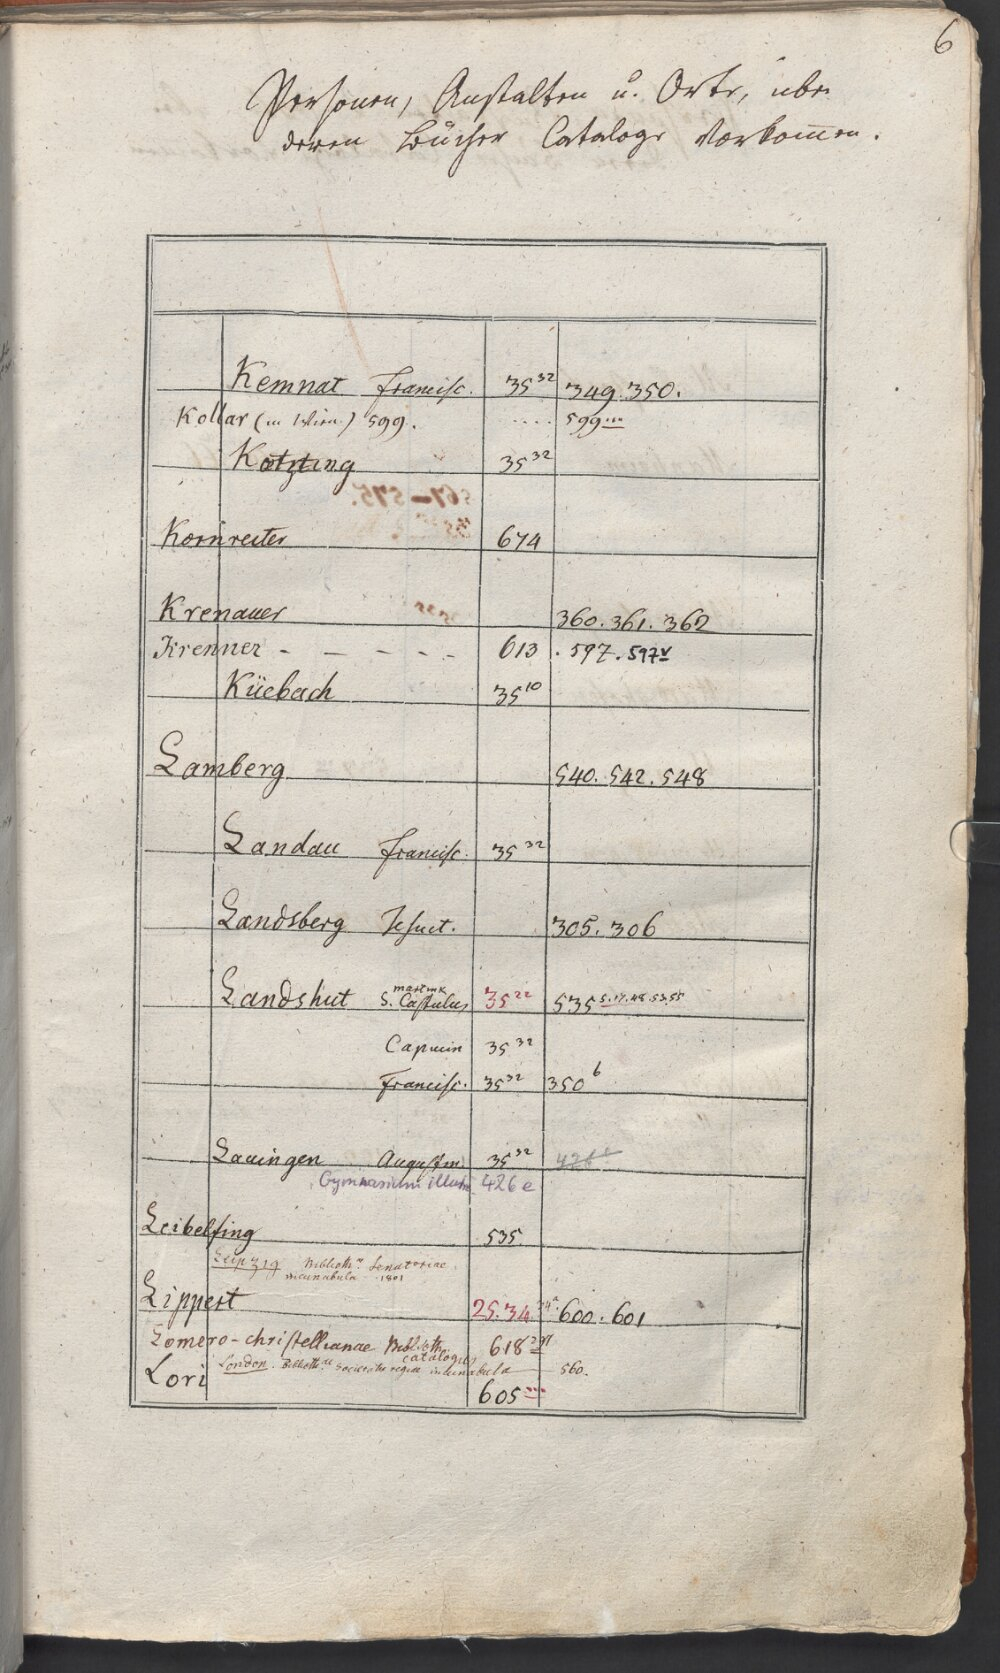 6
Personen, Anstalten u. Orte, über
deren Bücher Cataloge vorkommen.
Kemnat Francisc. 35 32 349. 350.
Kollar (in Wien.) 599. .... 599
Kötzting 35 32
Kornreiter 674
Krenauer 360. 361. 362
Krenner - - - - - - 613 . 597. 597v
Küebach 35 10
Lamberg 540. 542. 548
Landau Francisc. 35 32
Landsberg Jesuit. 305. 306
Landshut S. Castulus 35 22 535 5.17.48.53.55
Capucin 35 32
Francisc. 35 32 350 6
Lauingen Augustin 35 32
Gymnasium illustre 426 e
Leibelfing 535
Leipzig Biblioth. Senatoriae
incunabula 1801
Lippert 25. 34. 600. 601
Lomero-christellianae Biblioth. 618
catalogus
London. Bibliothae Societatis regiae incunabula 560.
Lori 605